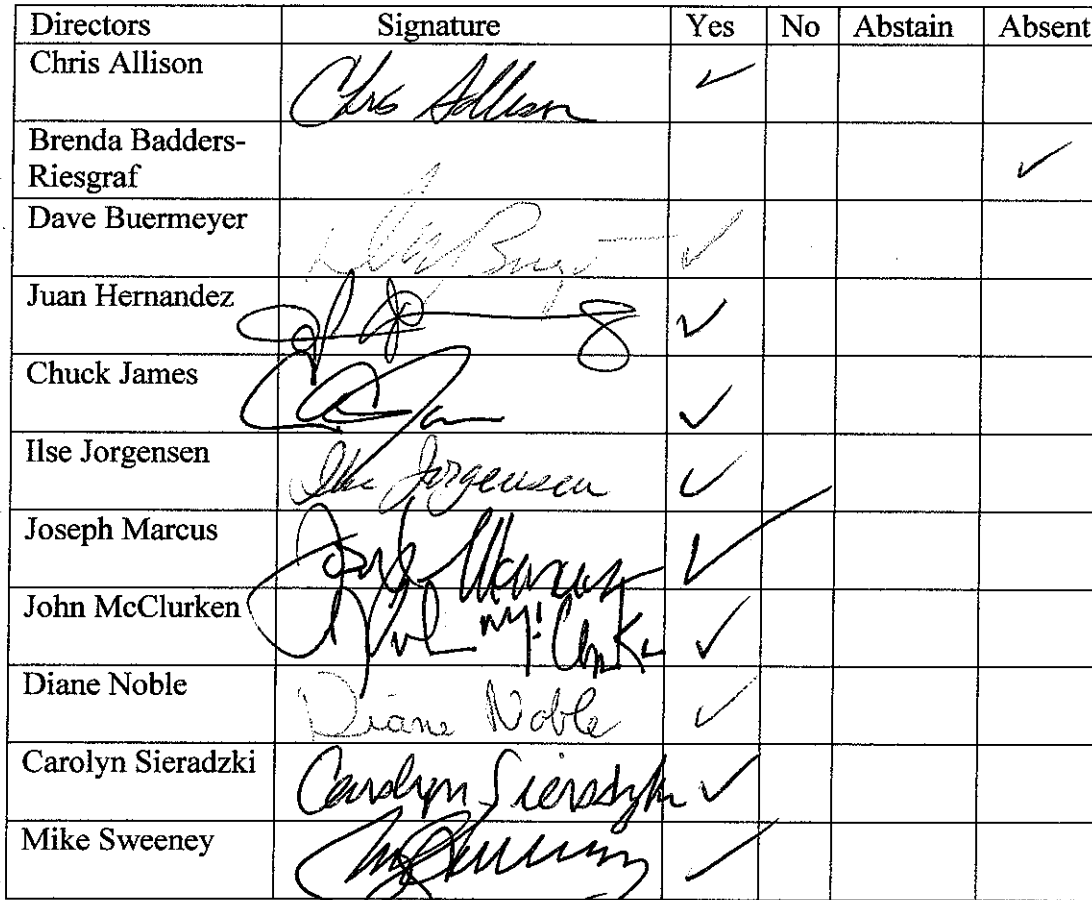 Directors Signature Yes No Abstain Absent
Chris Allison Chris Allison ✓
Brenda Badders-
Riesgraf ✓
Dave Buermeyer ✓
Juan Hernandez ✓
Chuck James ✓
Ilse Jorgensen Ilse Jorgensen ✓
Joseph Marcus Marcus ✓
John McClurken John ✓
Diane Noble Diane Noble ✓
Carolyn Sieradzki Carolyn Sieradzki ✓
Mike Sweeney ✓